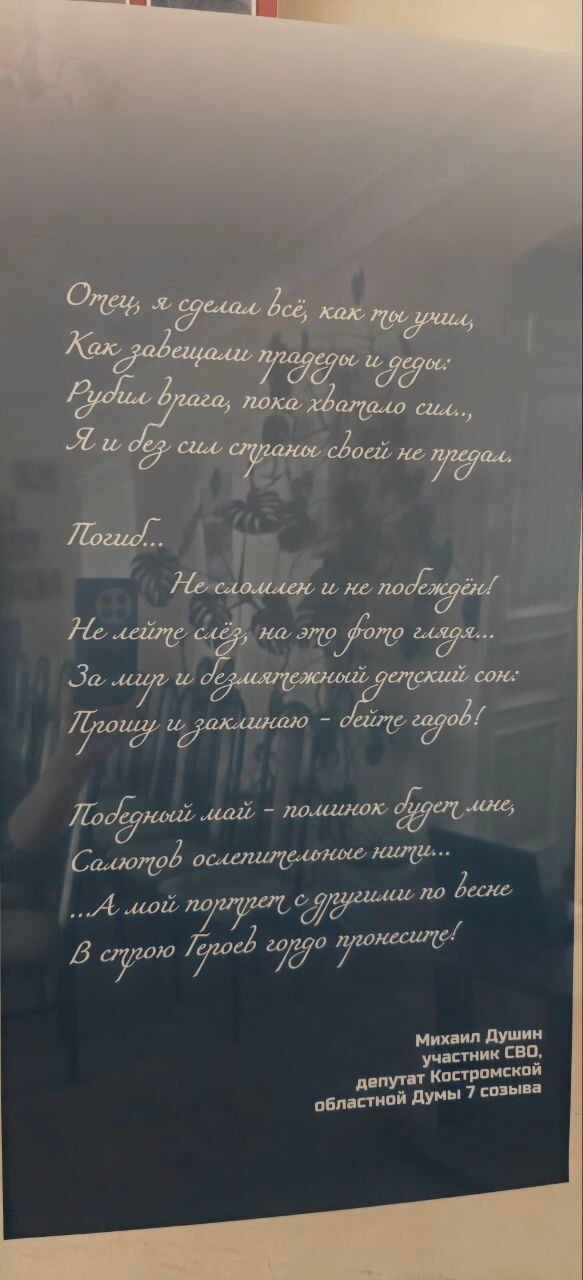 Отец, я сделал всё, как ты учил,
Как завещали прадеды и деды:
Рубил врага, пока хватало сил..,
Я и без сил страны своей не предал.
Погиб...
Не сломлен и не побеждён!
Не лейте слёз, на это фото глядя...
За мир и безмятежный детский сон:
Прошу и заклинаю - бейте гадов!
Победный май - поминок будет мне,
Салютов ослепительные нити...
...А мой портрет с другими по весне
В строю Героев гордо пронесите!
Михаил Душин
участник СВО,
депутат Костромской
областной Думы 7 созыва